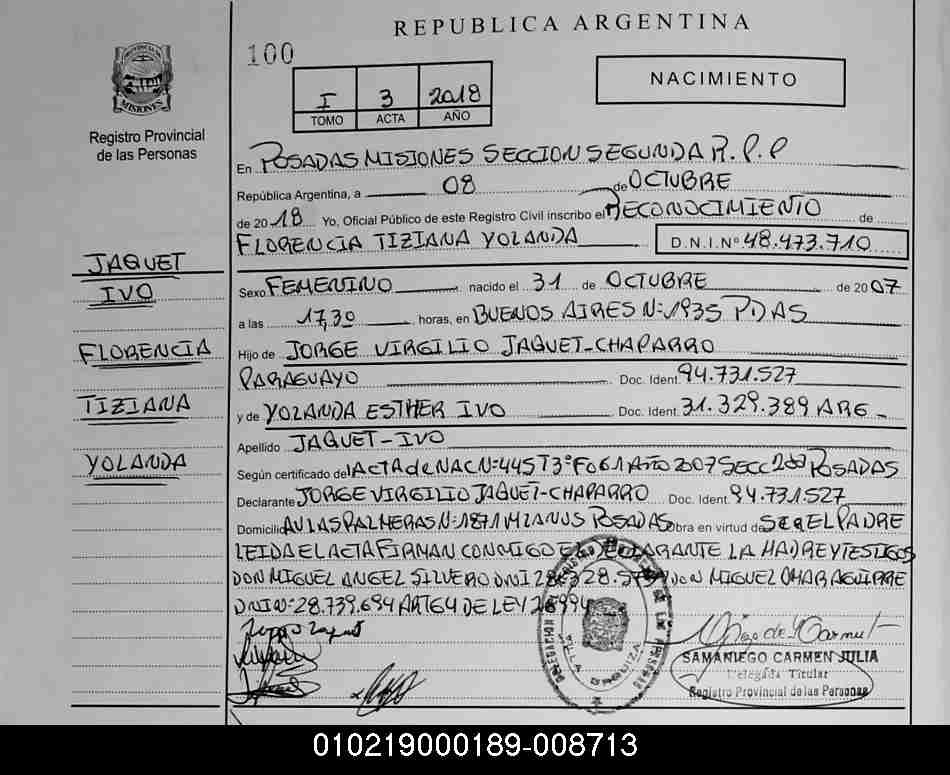 REPUBLICA ARGENTINA
100
PROVINCIA DE
MISIONES
Registro Provincial
de las Personas
I 3 2018
TOMO ACTA AÑO
NACIMIENTO
En POSADAS MISIONES SECCION SEGUNDA R.P.P
República Argentina, a 08 de OCTUBRE
de 2018 Yo, Oficial Público de este Registro Civil inscribo el RECONOCIMIENTO de
FLORENCIA TIZIANA YOLANDA D.N.I.Nº 48.473.710
JAQUET
IVO
FLORENCIA
TIZIANA
YOLANDA
Sexo FEMENINO nacido el 31 de OCTUBRE de 2007
a las 17,30 horas, en BUENOS AIRES Nº 1935 PDAS
Hijo de JORGE VIRGILIO JAQUET-CHAPARRO
PARAGUAYO Doc. Ident. 94.731.527
y de YOLANDA ESTHER IVO Doc. Ident. 31.329.389 ARG
Apellido JAQUET-IVO
Según certificado de ACTA de NAC Nº 445 T3º Fº 61 AÑO 2007 SECC 2da POSADAS
Declarante JORGE VIRGILIO JAQUET-CHAPARRO Doc. Ident. 94.731.527
Domicilio AV LAS PALMERAS Nº 1871 POSADAS Obra en virtud de SER EL PADRE
LEIDA EL ACTA FIRMAN CONMIGO EL DECLARANTE LA MADRE Y TESTIGOS
DON MIGUEL ANGEL SILVERO DNI DON MIGUEL OMAR AGUIRRE
DNI Nº 28.739.694 ART 64 DE LEY 26994
VILLA URQUIZA
SAMANIEGO CARMEN JULIA
Delegada Titular
Registro Provincial de las Personas
010219000189-008713